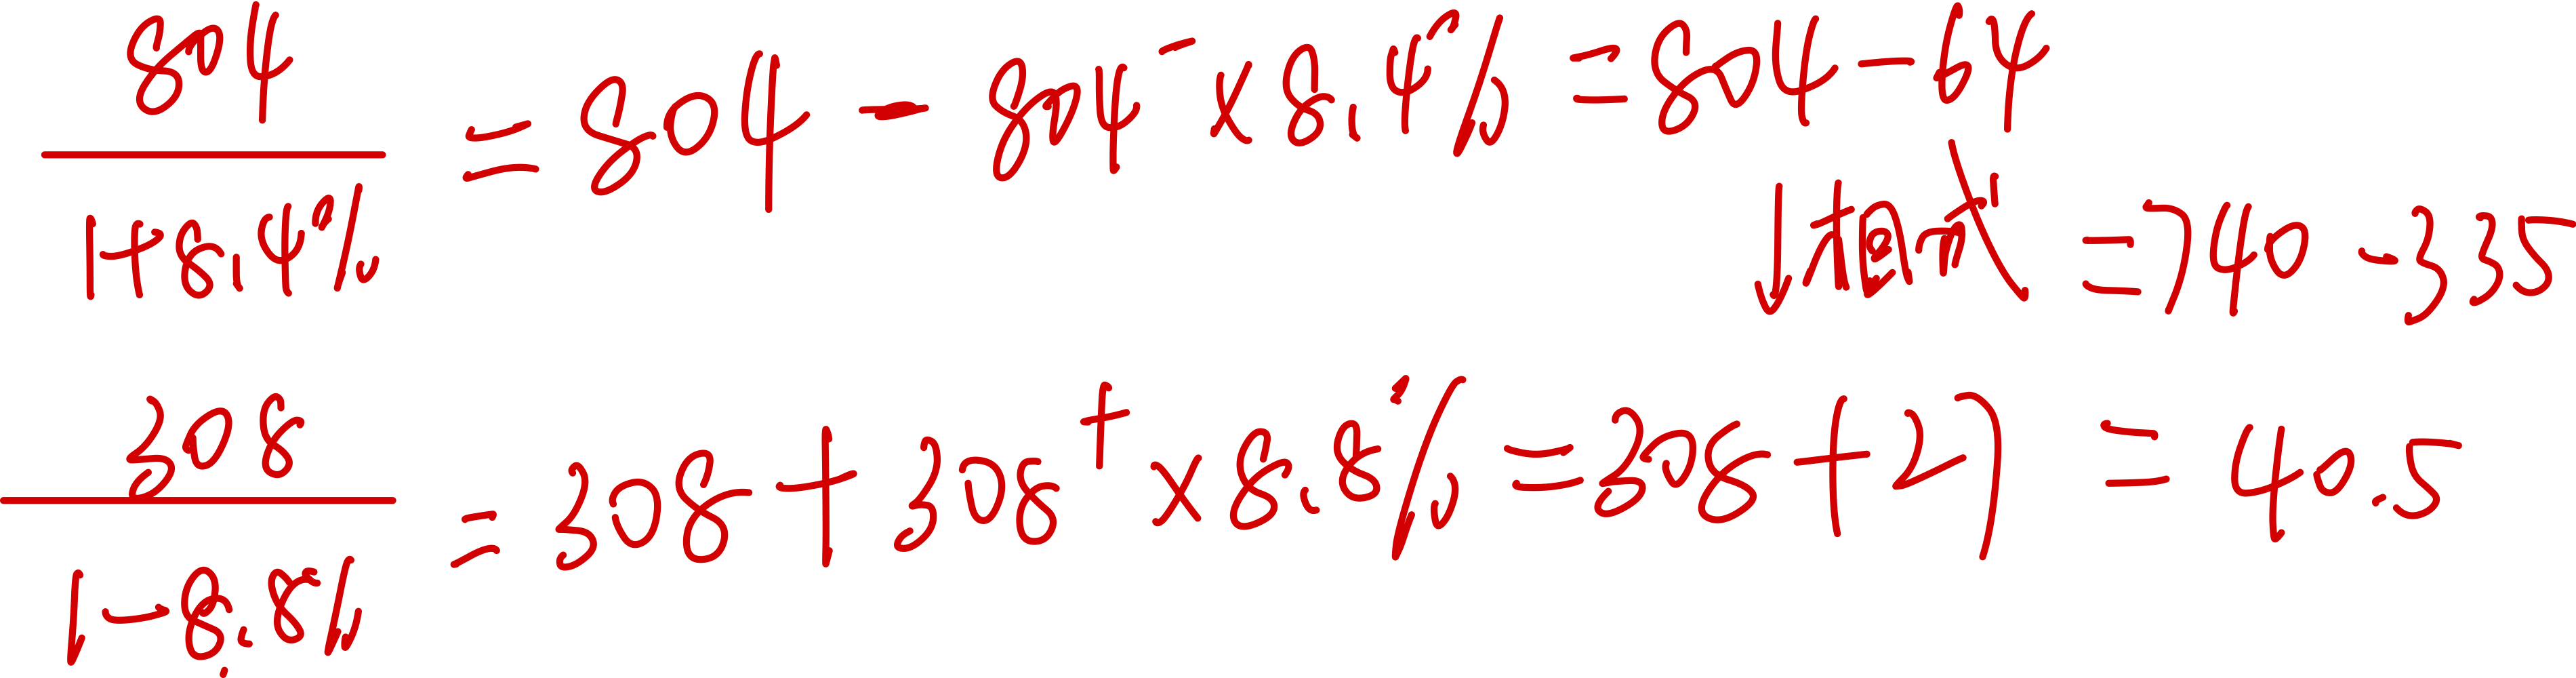 804/(1+8.4%) = 804 - 804⁻ × 8.4% = 804 - 64
↓相减 = 740 - 335
308/(1-8.8%) = 308 + 308⁺ × 8.8% = 308 + 27 = 40.5